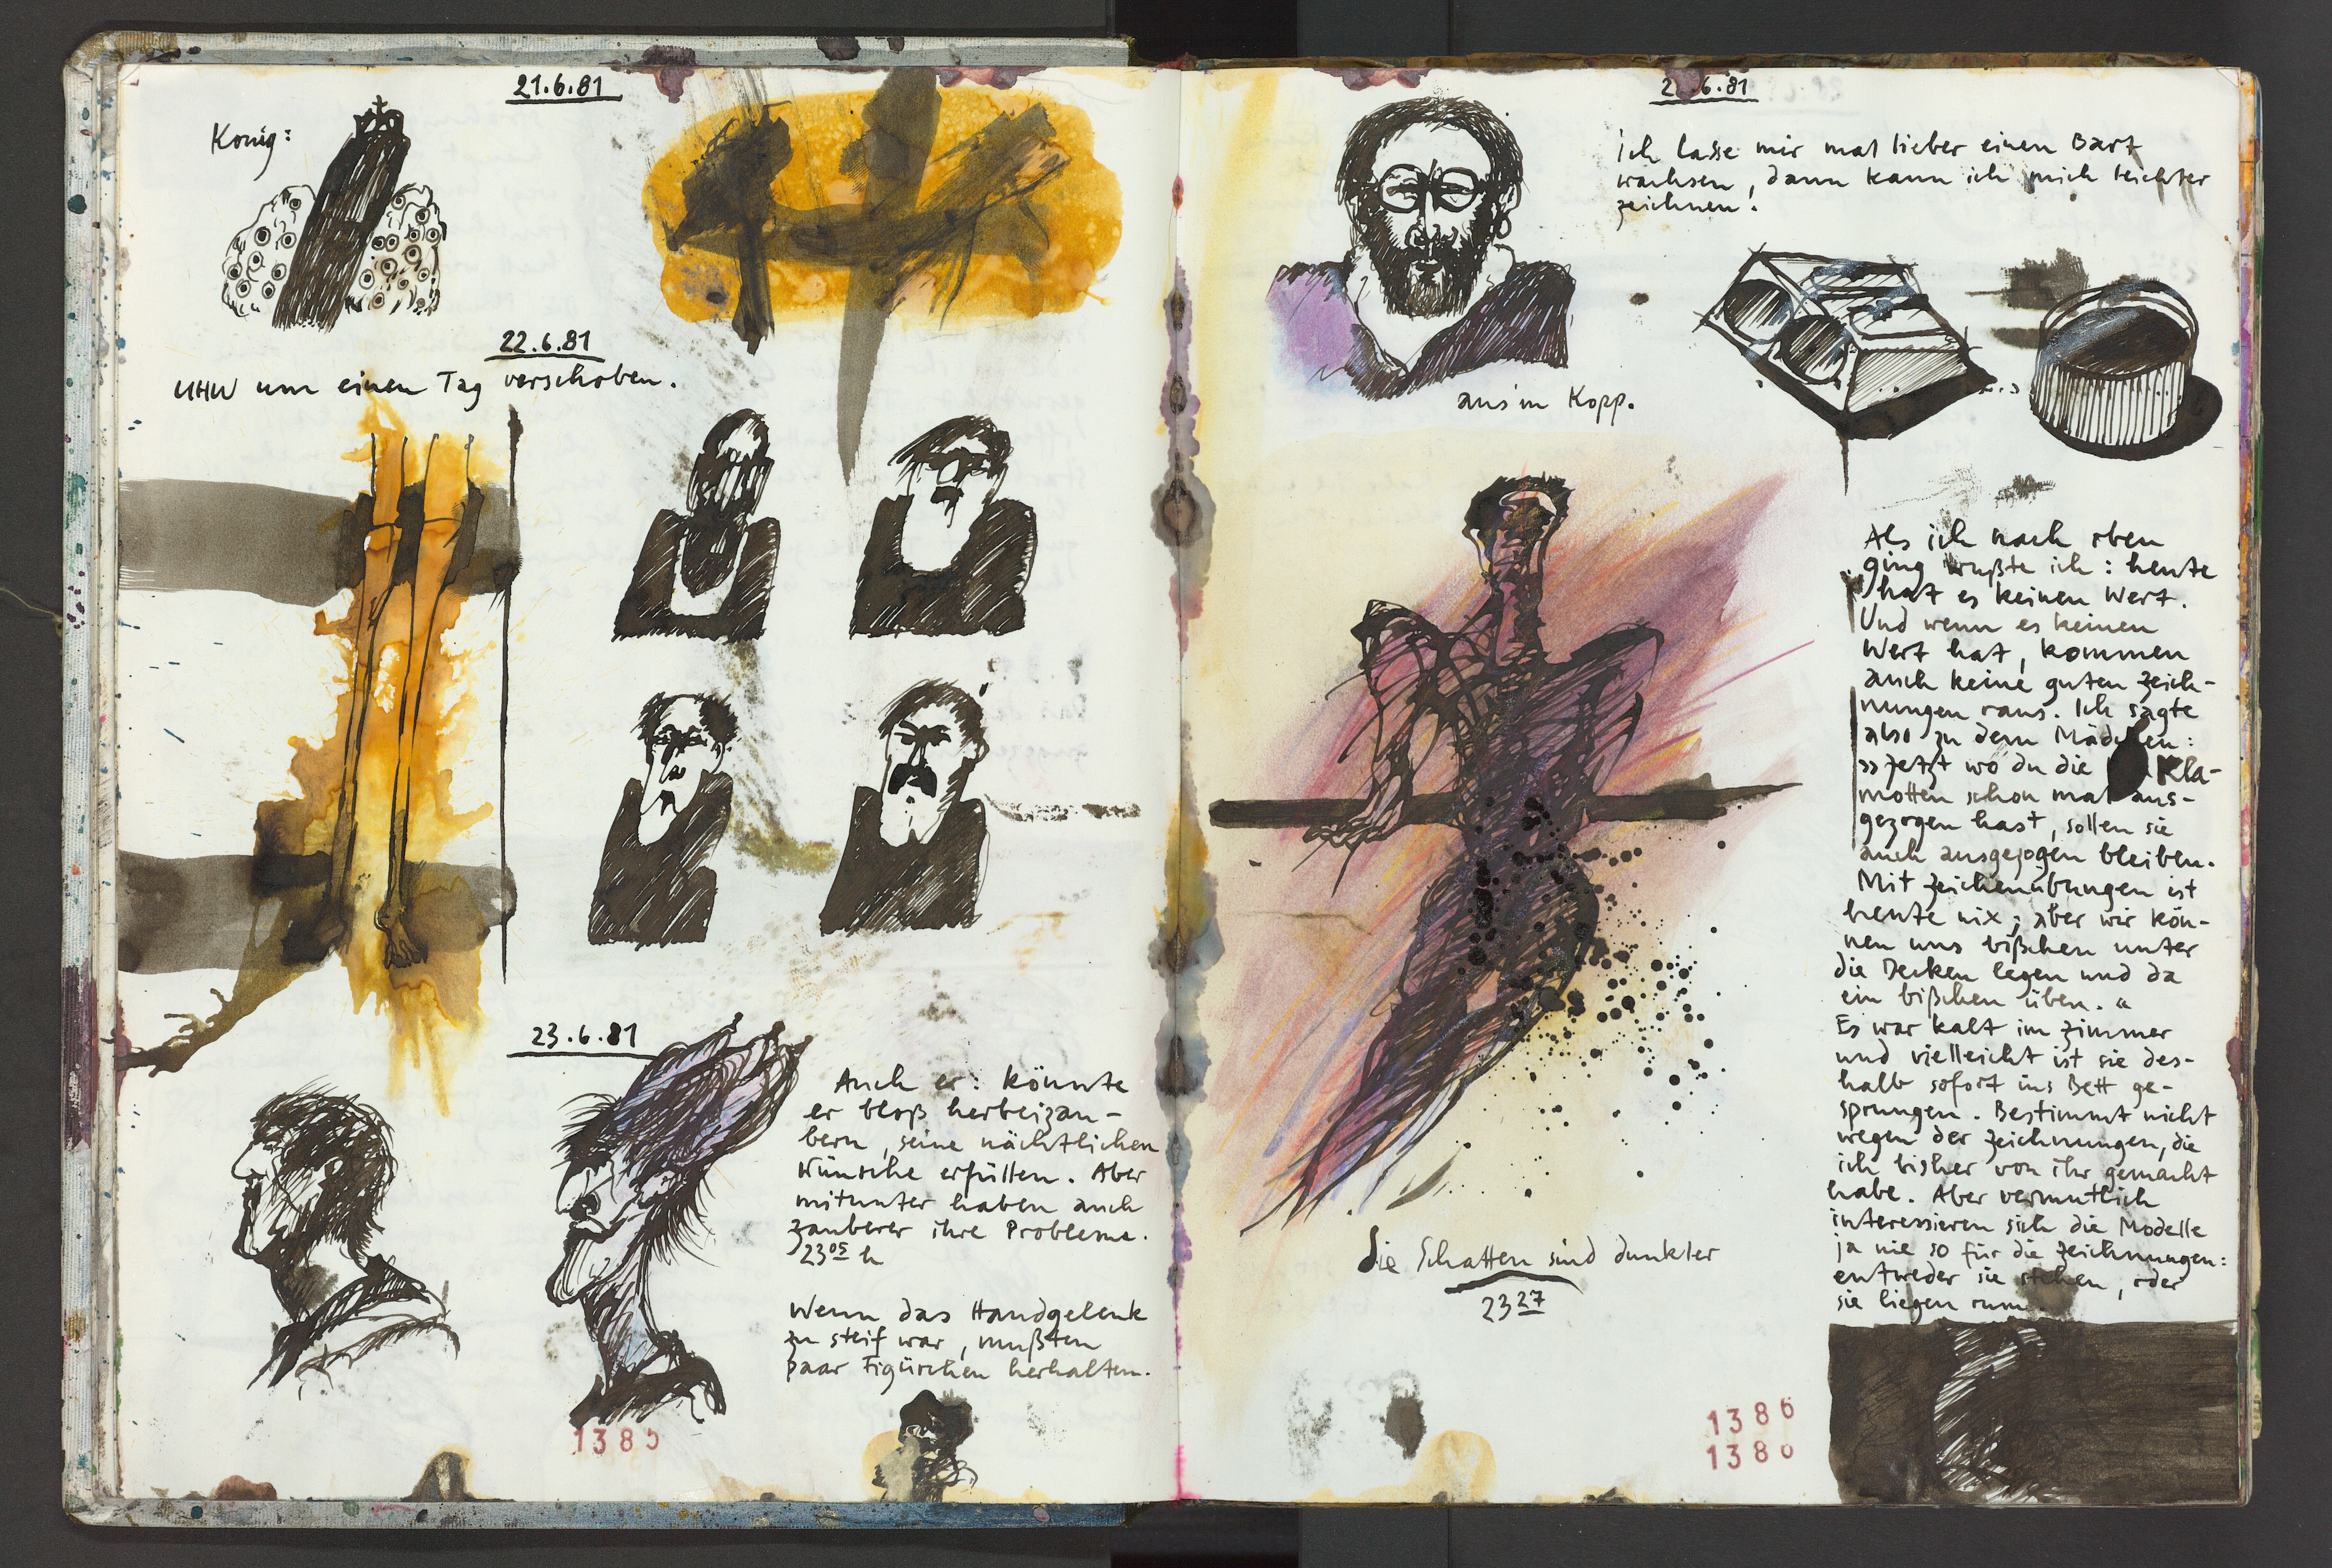 21.6.81
König:
22.6.81
UHW um einen Tag verschoben.
23.6.81
Auch er: könnte
er bloß herbeizau-
bern, seine nächtlichen
Wünsche erfüllen. Aber
mitunter haben auch
Zauberer ihre Probleme.
2305 h
Wenn das Handgelenk
zu steif war, mußten
paar Figürchen herhalten.
1385
6.81
ich lasse mir mal lieber einen Bart
wachsen, dann kann ich mich leichter
zeichnen.
aus'm Kopp.
Als ich nach oben
ging wußte ich: heute
hat es keinen Wert.
Und wenn es keinen
Wert hat, kommen
auch keine guten Zeich-
nungen raus. Ich sagte
also zu dem Mädchen:
»Jetzt wo du die Kla-
motten schon mal aus-
gezogen hast, sollen sie
auch ausgezogen bleiben.
Mit Zeichenübungen ist
heute nix; aber wir kön-
nen uns bißchen unter
die Decken legen und da
ein bißchen üben.«
Es war kalt im Zimmer
und vielleicht ist sie des-
halb sofort ins Bett ge-
sprungen. Bestimmt nicht
wegen der Zeichnungen, die
ich bisher von ihr gemacht
habe. Aber vermutlich
interessieren sich die Modelle
ja nie so für die Zeichnungen:
entweder sie stehen, oder
sie liegen rum.
die Schatten sind dunkler
2327
1386
1386